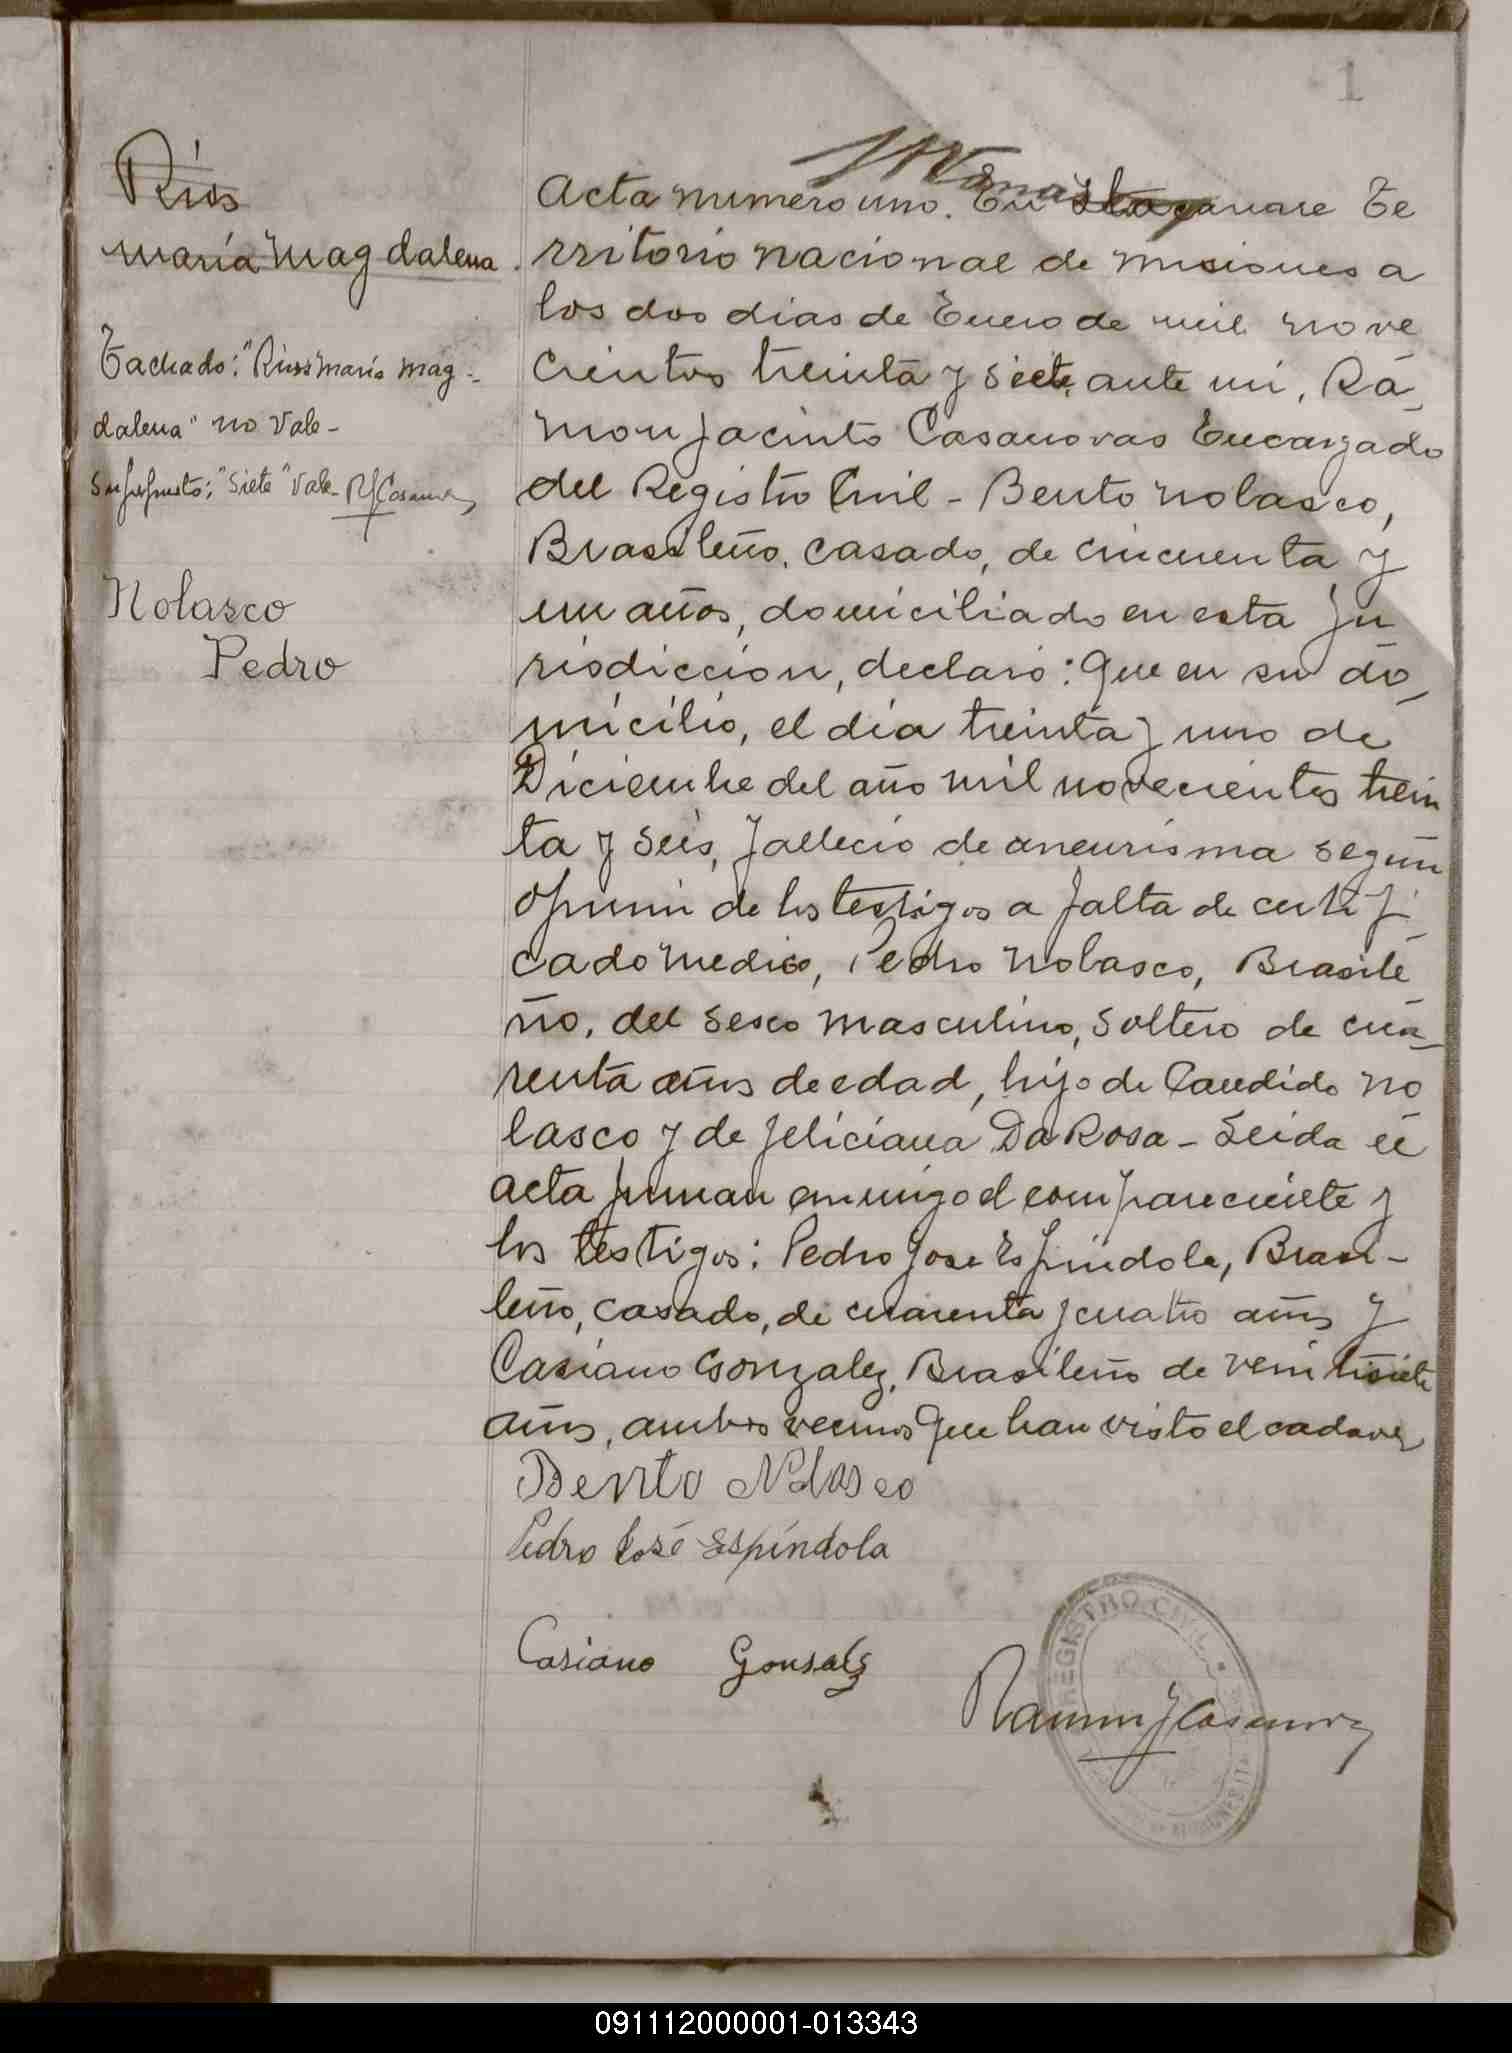 1
Ríos
María Magdalena.
Tachado: "Rios María Mag-
dalena" no Vale-
Suprpuesto: "Siete" Vale- RJCasanovas
Nolasco
Pedro
Acta numero uno. En Te
rritorio Nacional de Misiones a
los dos dias de Enero de mil nove
cientos treinta y siete, ante mi, Ra-
mon Jacinto Casanovas Encargado
del Registro Civil - Bento Nolasco,
Brasileño, casado, de cincuenta y
un años, domiciliado en esta ju
risdiccion, declaró: Que en su do-
micilio, el día treinta y uno de
Diciembre del año mil novecientos trein
ta y seis, falleció de aneurisma según
opinión de los testigos a falta de certifi
cado medico, Pedro Nolasco, Brasile
ño, del sexo masculino, soltero de cua-
renta años de edad, hijo de Candido No
lasco y de Feliciana Da Rosa - Leida el
acta firman conmigo el compareciente y
los testigos: Pedro Jose Espindola, Brasi-
leño, casado, de cuarenta y cuatro años y
Casiano Gonzalez, Brasileño de veintisiete
años, ambos vecinos que han visto el cadaver
Bento Nolasco
Pedro José Espíndola
Casiano Gonsalz
Ramon J Casanovas
REGISTRO CIVIL
MISIONES
091112000001-013343